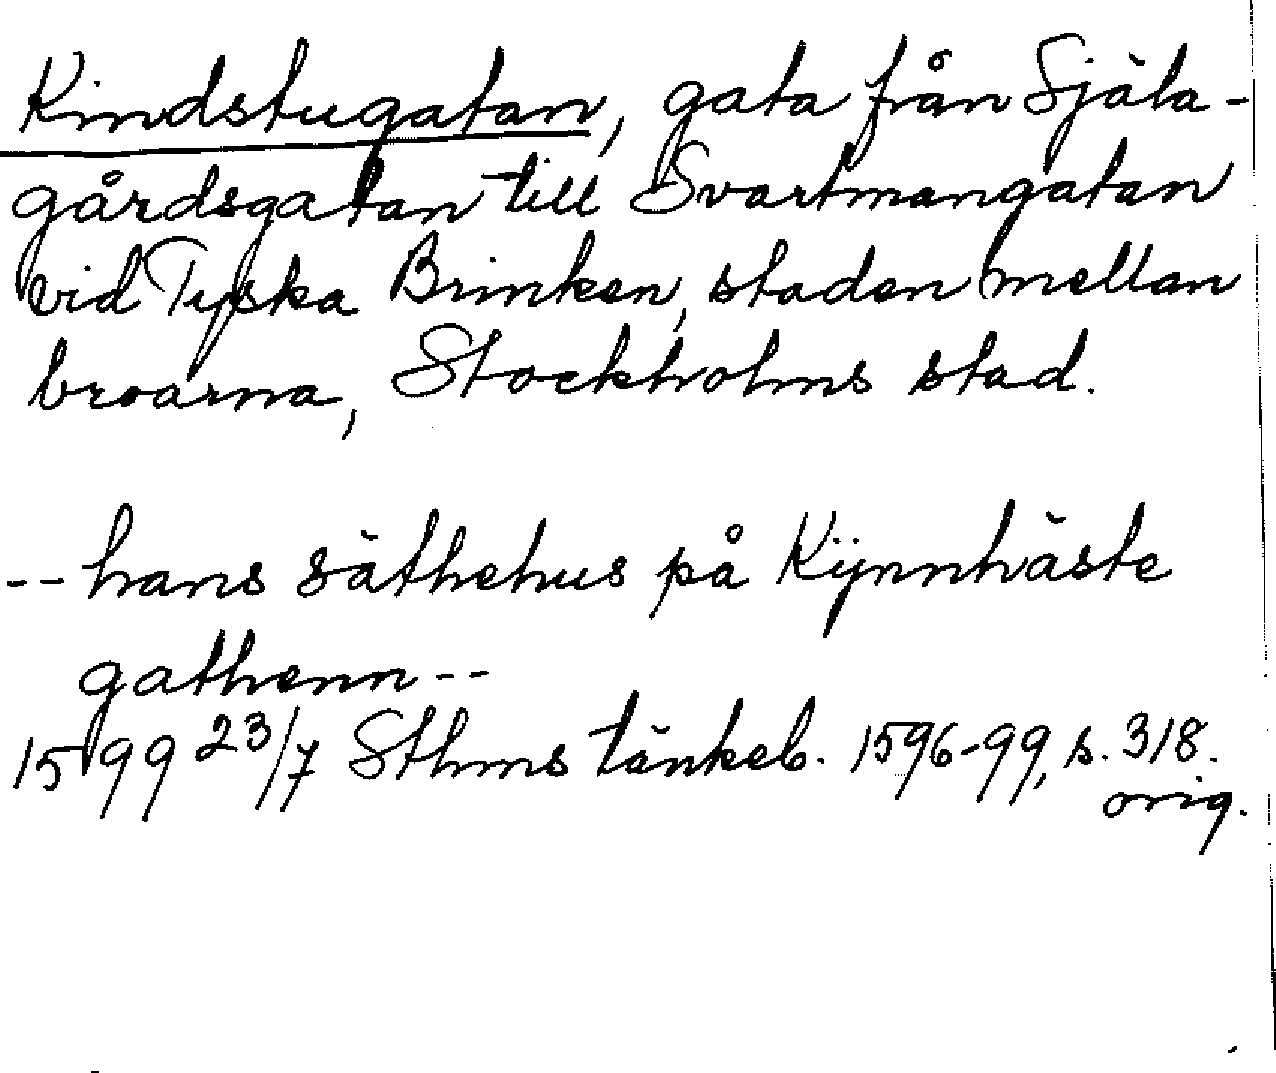 Kindstugatan, gata från Själa-
gårdsgatan till Svartmangatan
vid Tyska Brinken, staden mellan
broarna, Stockholms stad.
-- hans säthehus på Kÿnnhäste
gathenn --
1599 23/7 Sthms tänkeb. 1596-99, s. 318.
orig.